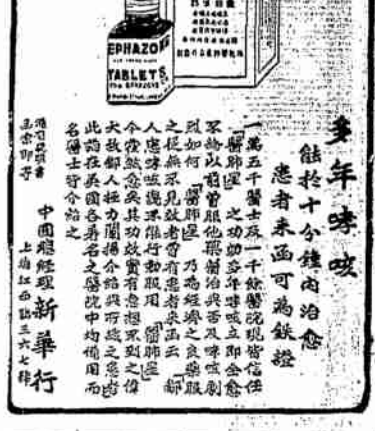 EPHAZON
TABLETS
THE EPHAZONE
多年哮咳
能於十分鐘內治愈
患者來函可為鉄證
一萬五千醫士及一千餘醫院現皆信任
「醫肺星」之功効多年哮咳立卽全愈
不論以前曾服他藥醫治與否及哮咳劇
烈如何「醫肺星」乃為經濟之良藥服
之從無不見效者曾有患者來函云「鄙
人患哮咳證不能行動服用「醫肺星」
今霍然愈矣其功效實有意想不到之偉
大故鄙人極力闡揚介紹與所識之患者
此药在英國各著名之醫院中均備用而
名醫士皆介紹之
備有說明書
函索卽寄
中國總經理 新華行
上海江西路三六七號